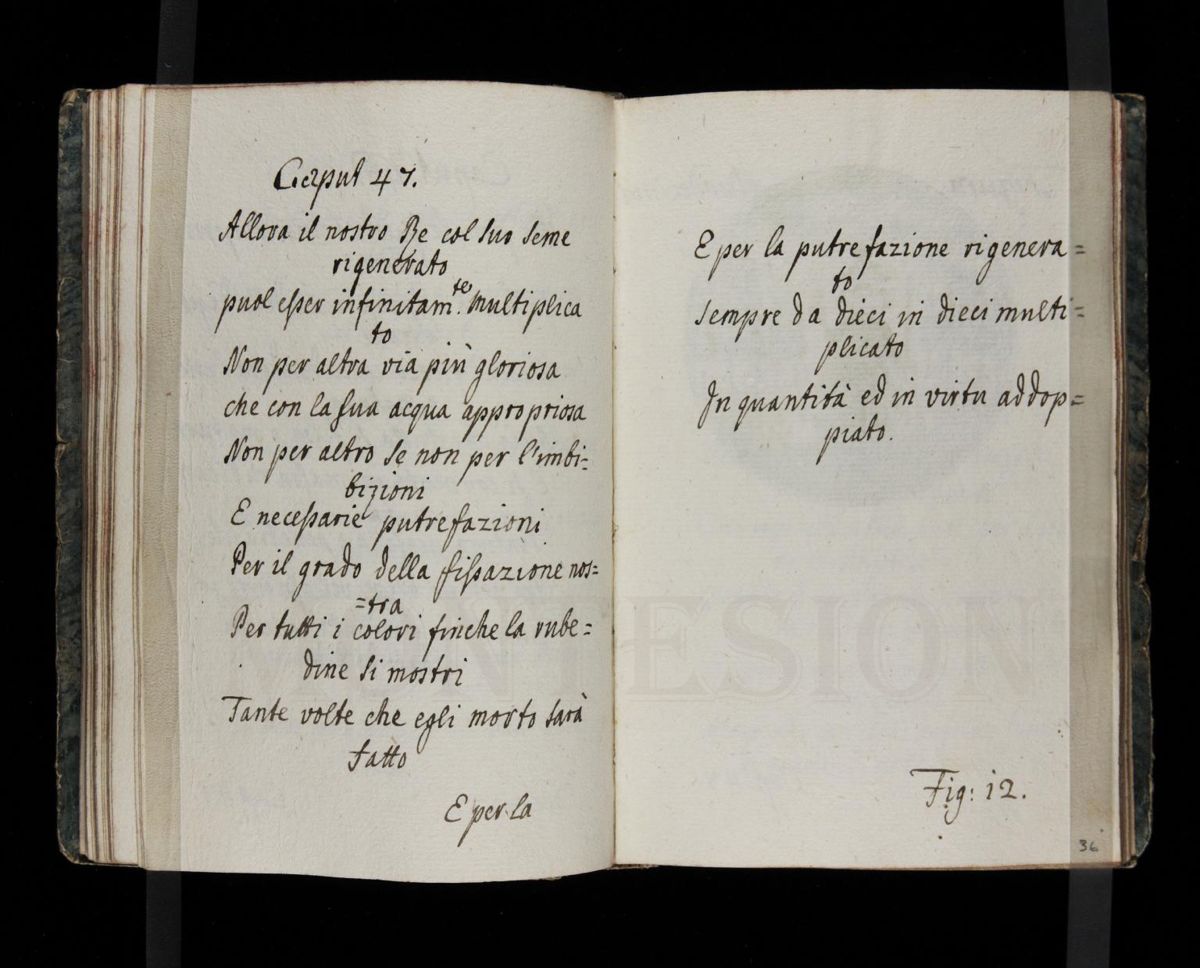 Caput 47.
Allora il nostro Re col suo seme
rigenerato
puol esser infinitam.te multiplica
to
Non per altra via più gloriosa
che con la sua acqua appropriosa
Non per altro se non per l'imbi=
bizioni
E necessarie putrefazioni
Per il grado della fissazione nos=
=tra
Per tutti i colori finche la rube=
dine si mostri
Tante volte che egli morto sarà
fatto
E per la
E per la putrefazione rigenera=
to
sempre da dieci in dieci multi=
plicato
In quantità ed in virtu addop=
piato.
Fig: 12.
36